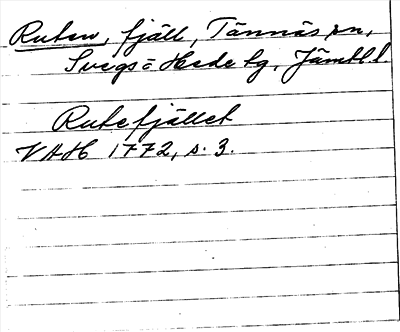 Ruten, fjäll, Tännäs sn,
Svegs = Hede tg, Jämtl. l
Rutefjället
VAH 1772, s. 3.